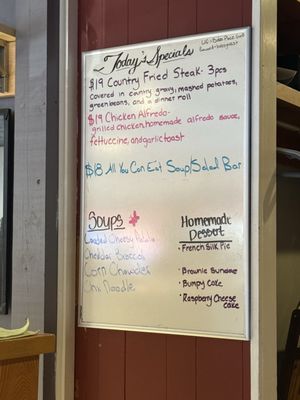 Today's Specials
$19 Country Fried Steak- 3pcs
covered in country gravy, mashed potatoes,
green beans, and a dinner roll
$19 Chicken Alfredo-
grilled chicken, homemade alfredo sauce,
fettuccine, and garlic toast
$18 All You Can Eat Soup/Salad Bar
Soups
Loaded Cheesy Potato
Cheddar Broccoli
Corn Chowder
Chix Noodle
Homemade
Dessert
• French Silk Pie
• Brownie Sundae
• Bumpy Cake
• Raspberry Cheese
cake